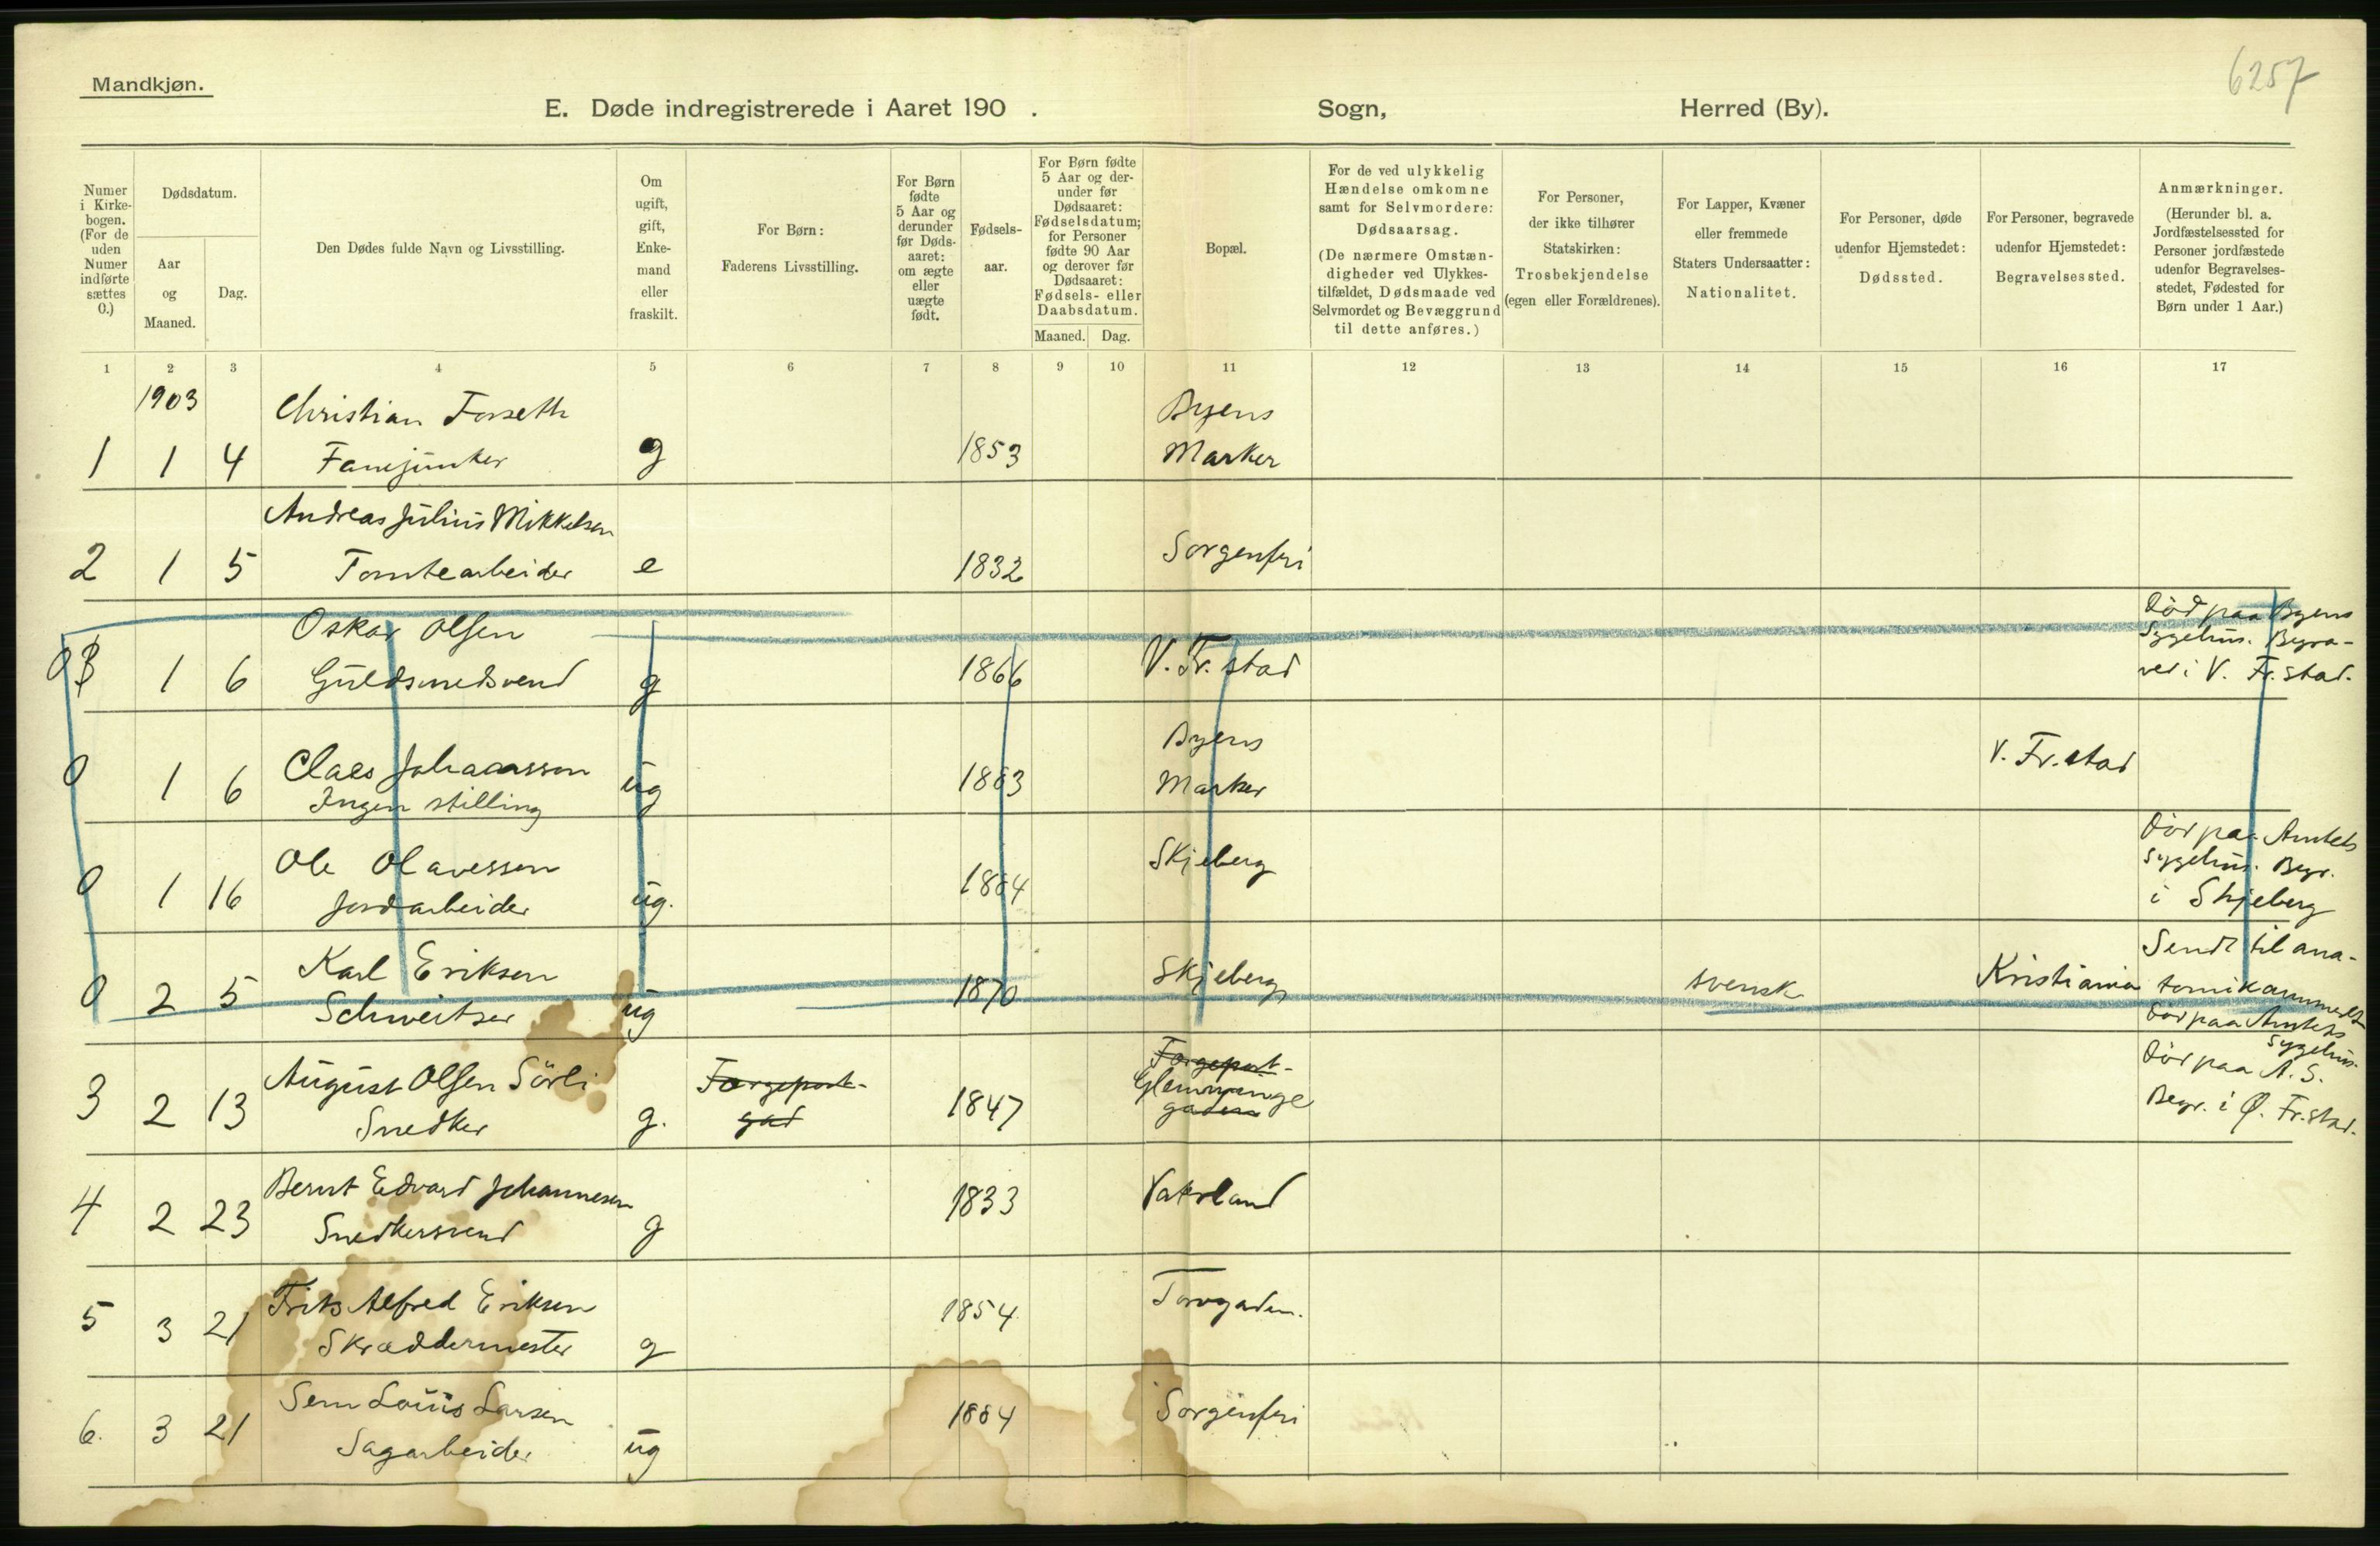 6257
Mandkjøn.
E. Døde indregistrerede i Aaret 190 . Sogn, Herred (By).
Numer
i Kirke-
bogen.
(For de
uden
Numer
indførte
sættes
0.)
Dødsdatum.
Aar
og
Maaned.
Dag.
Den Dødes fulde Navn og Livsstilling.
Om
ugift,
gift,
Enke-
mand
eller
fraskilt.
For Børn:
Faderens Livsstilling.
For Børn
fødte
5 Aar og
derunder
før Døds-
aaret:
om ægte
eller
uægte
født.
Fødsels-
aar.
For Børn fødte
5 Aar og der-
under før
Dødsaaret:
Fødselsdatum;
for Personer
fødte 90 Aar
og derover før
Dødsaaret:
Fødsels- eller
Daabsdatum.
Maaned. Dag.
Bopæl.
For de ved ulykkelig
Hændelse omkomne
samt for Selvmordere:
Dødsaarsag.
(De nærmere Omstæn-
digheder ved Ulykkes-
tilfældet, Dødsmaade ved
Selvmordet og Bevæggrund
til dette anføres.)
For Personer,
der ikke tilhører
Statskirken:
Trosbekjendelse
(egen eller Forældrenes).
For Lapper, Kvæner
eller fremmede
Staters Undersaatter:
Nationalitet.
For Personer, døde
udenfor Hjemstedet:
Dødssted.
For Personer, begravede
udenfor Hjemstedet:
Begravelsessted.
Anmærkninger.
(Herunder bl. a.
Jordfæstelsessted for
Personer jordfæstede
udenfor Begravelses-
stedet, Fødested for
Børn under 1 Aar.)
1 2 3 4 5 6 7 8 9 10 11 12 13 14 15 16 17
1903 Christian Forseth Byens
1 1 4 Fanejunker g 1853 Marker
Andreas Julius Mikkelsen
2 1 5 Tomtearbeider e 1832 Sorgenfri
Oskar Olsen Död paa Byens
Sygehus. Begra-
0 3 1 6 Guldsmedsvend g 1866 V. Fr. stad ved i V. Fr. stad.
Claes Johansson Byens V. Fr. stad
0 1 6 Ingen stilling ug 1883 Marker
Ole Olavessen Skjeberg Död paa Amtets
Sygehus. Begr.
0 1 16 Jordarbeider ug. 1884 i Skjeberg
Karl Eriksen Skjeberg svensk Kristiania Sendt til ana-
tomikammeret
0 2 5 Schweitser ug 1870 Död paa Amtets
Sygehus.
August Olsen Sörli Færgeport- Færgeport- Död paa A. S.
gad Glemminge
3 2 13 Snedker g. 1847 gaden Begr. i Ø. Fr. stad.
Bernt Edvard Johannesen
4 2 23 Snedkersvend g 1833 Vaterland
Frits Alfred Eriksen
5 3 21 Skræddermester g 1854 Torvgaden.
Sem Louis Larsen
6. 3 21 Sagarbeider ug 1884 Sorgenfri